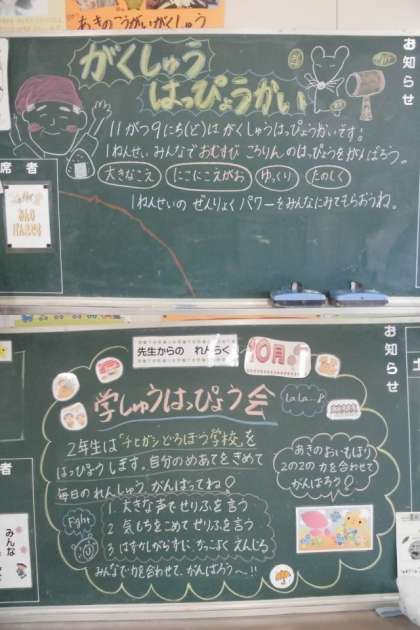 あきのこうがいがくしゅう
お知らせ
がくしゅう
はっぴょうかい
11がつ9にち(ど)は がくしゅうはっぴょうかいです。
1ねんせい みんなで おむすび ころりん のはっぴょうを がんばろう。
大きなこえ にこにこえがお ゆっくり たのしく
1ねんせいの ぜんりょく パワーを みんなに みてもらおうね。
席 者
先生からの れんらく
10月
お知らせ
学しゅうはっぴょう会
LaLa..♪
2年生は "チビガンどろぼう学校" を
はっぴょう します。自分の めあてを きめて
毎日の れんしゅう がんばってね!
あきのおいもほり
2の2の 力を合わせて
がんばろう!
Fight
1. 大きな声で せりふを 言う
2. 気もちを こめて せりふを 言う
3. はずかしがらずに、かっこよく えんじる
みんなで力を合わせて、がんばろう〜!!
者
みんな